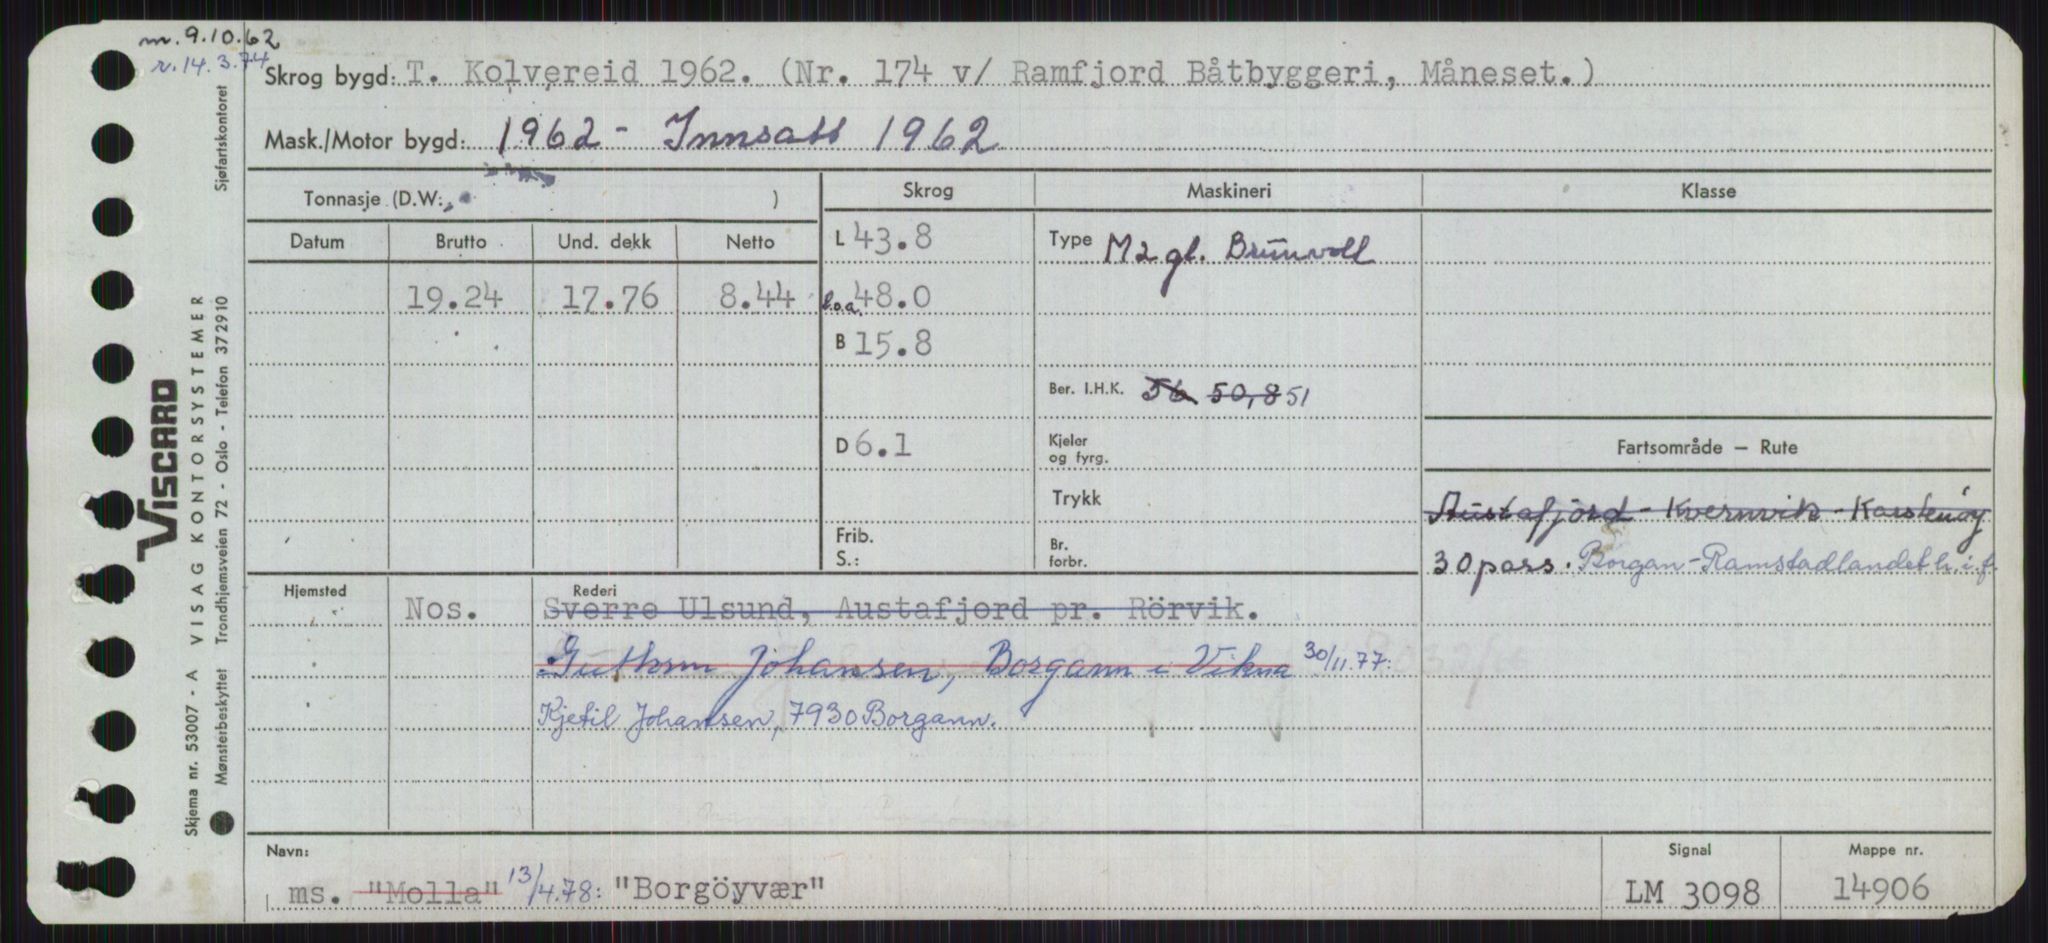 m. 9.10.62
r. 14.3.74
Skrog bygd: T. Kolvereid 1962. (Nr. 174 v/ Ramfjord Båtbyggeri, Måneset.)
Mask./Motor bygd: 1962 - Innsatt 1962
Tonnasje (D.W: )
Skrog
Maskineri
Klasse
Datum
Brutto
Und. dekk
Netto
L 43.8
Type M 2 gl. Brunvoll
19.24
17.76
8.44
l.o.a. 48.0
B 15.8
Ber. I.H.K. 56 50,8 51
D 6.1
Kjeler
og fyrg.
Fartsområde — Rute
Trykk
Austafjord - Kvernvik - Karstenøy
Frib.
S.:
Br.
forbr.
30 pass. Borgan - Ramstadlandet h.i.f.
Hjemsted
Rederi
Nos.
Sverre Ulsund, Austafjord pr. Rörvik.
Guthrun Johansen, Borgann i Vikna 30/11.77:
Kjetil Johansen, 7930 Borgann.
Navn:
ms. "Molla" 13/4.78: "Borgöyvær"
Signal
LM 3098
Mappe nr.
14906
VISCARD
Skjema nr. 53007 - A VISAG KONTORSYSTEMER
Mønsterbeskyttet Trondhjemsveien 72 - Oslo - Telefon 372910
Sjøfartskontoret